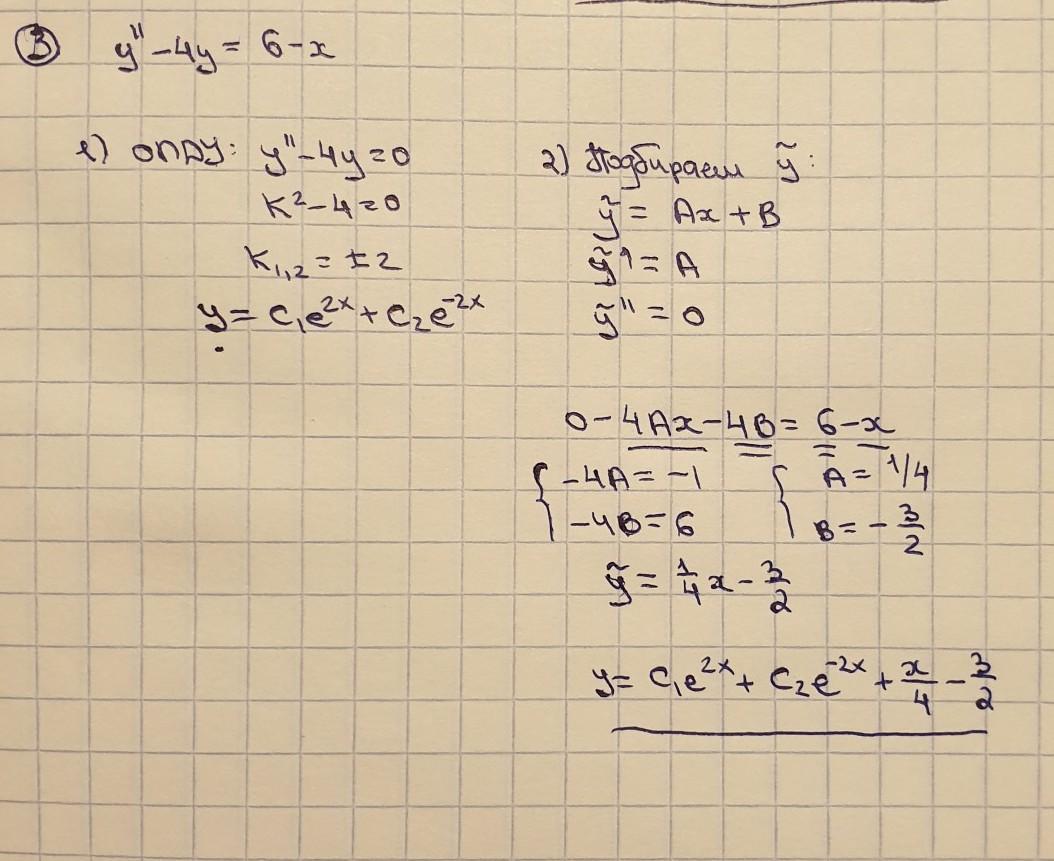 ③ y'' - 4y = 6 - x
1) ОЛДУ: y'' - 4y = 0
K² - 4 = 0
K₁,₂ = ± 2
y = C₁e²ˣ + C₂e⁻²ˣ
2) Подбираем ỹ:
ỹ = Ax + B
ỹ' = A
ỹ'' = 0
0 - 4Ax - 4B = 6 - x
{ -4A = -1 { A = 1/4
-4B = 6 B = - 3/2
ỹ = 1/4 x - 3/2
y = C₁e²ˣ + C₂e⁻²ˣ + x/4 - 3/2